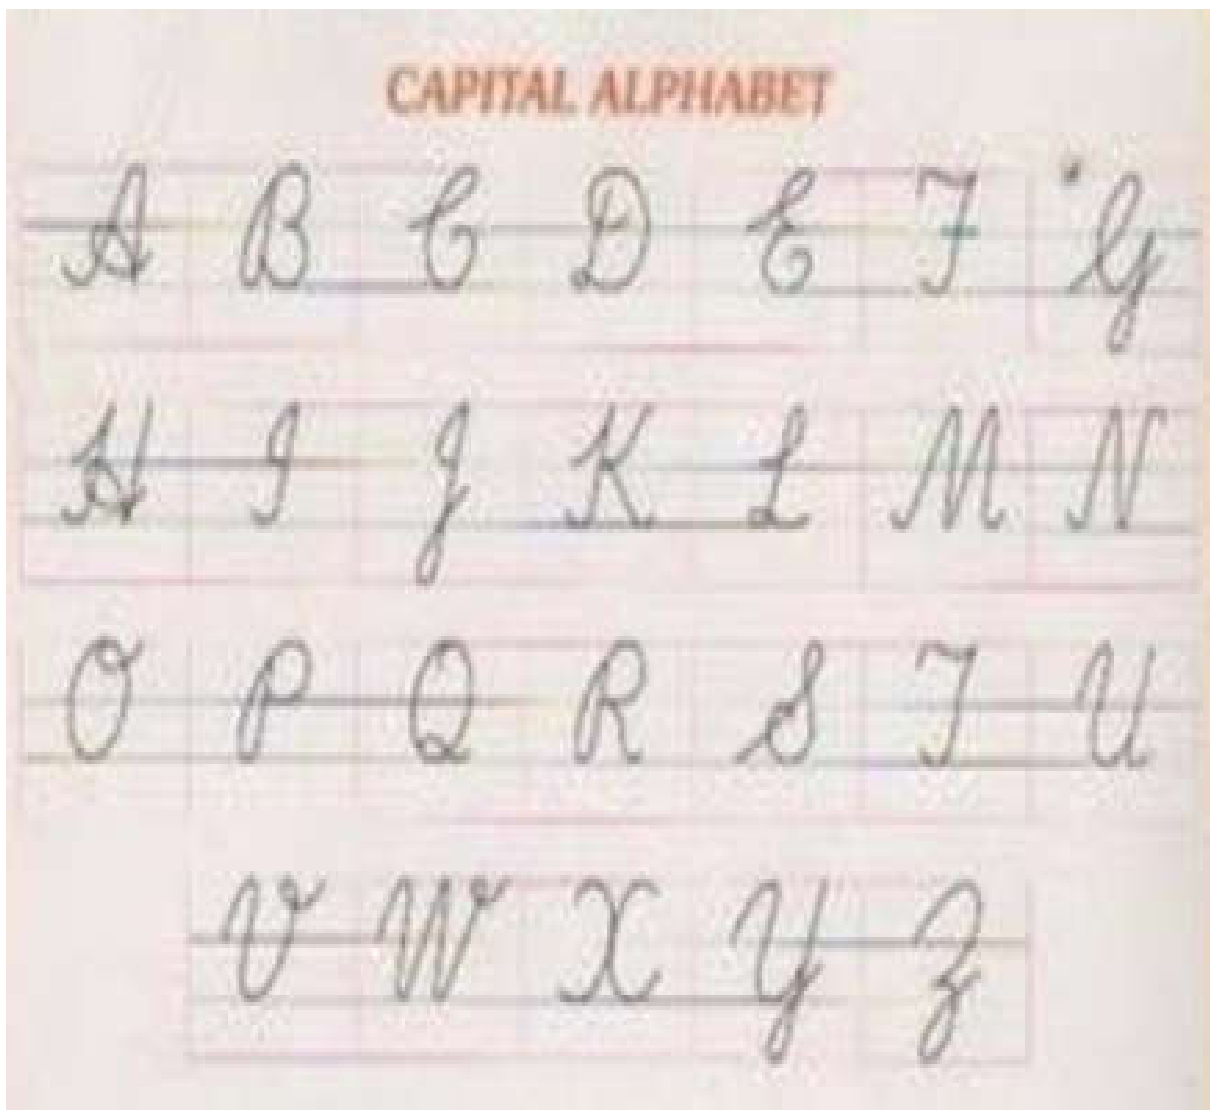 CAPITAL ALPHABET
A B C D E F G
H I J K L M N
O P Q R S T U
V W X Y Z